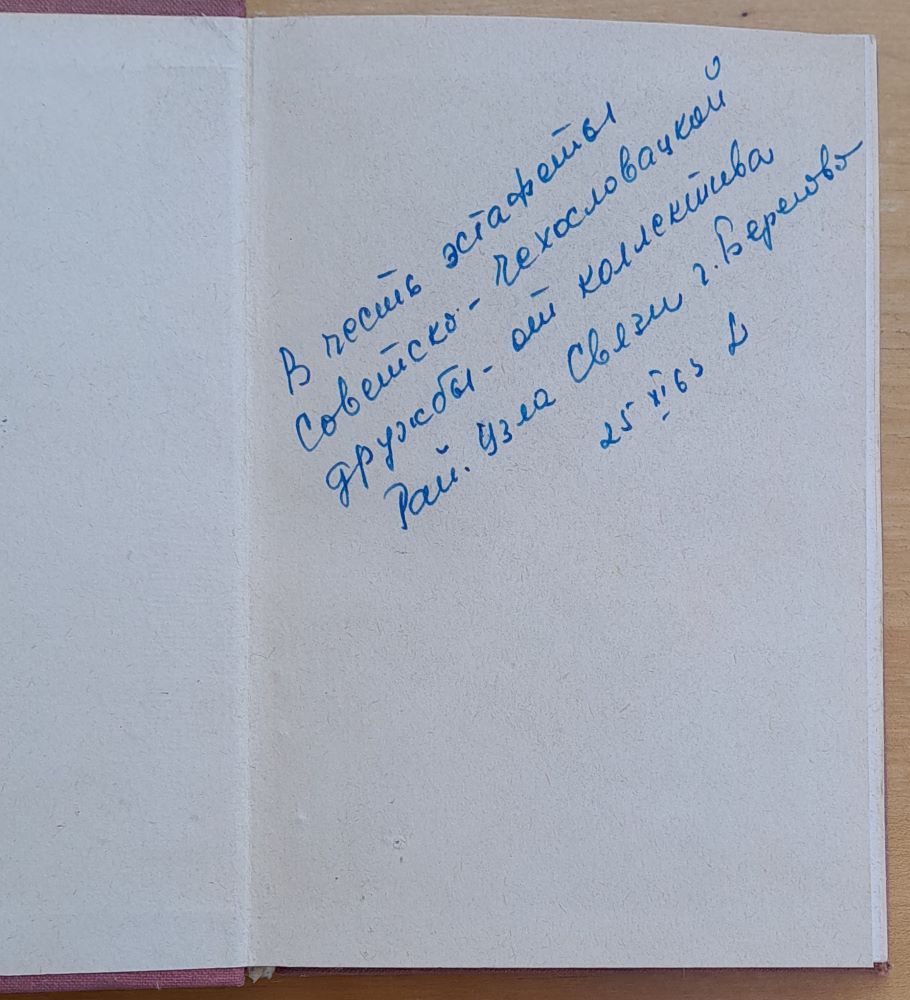 В честь эстафеты
Советско-Чехословацкой
дружбы - от коллектива
Рай. Узла Связи г. Берегово
25 XI 63